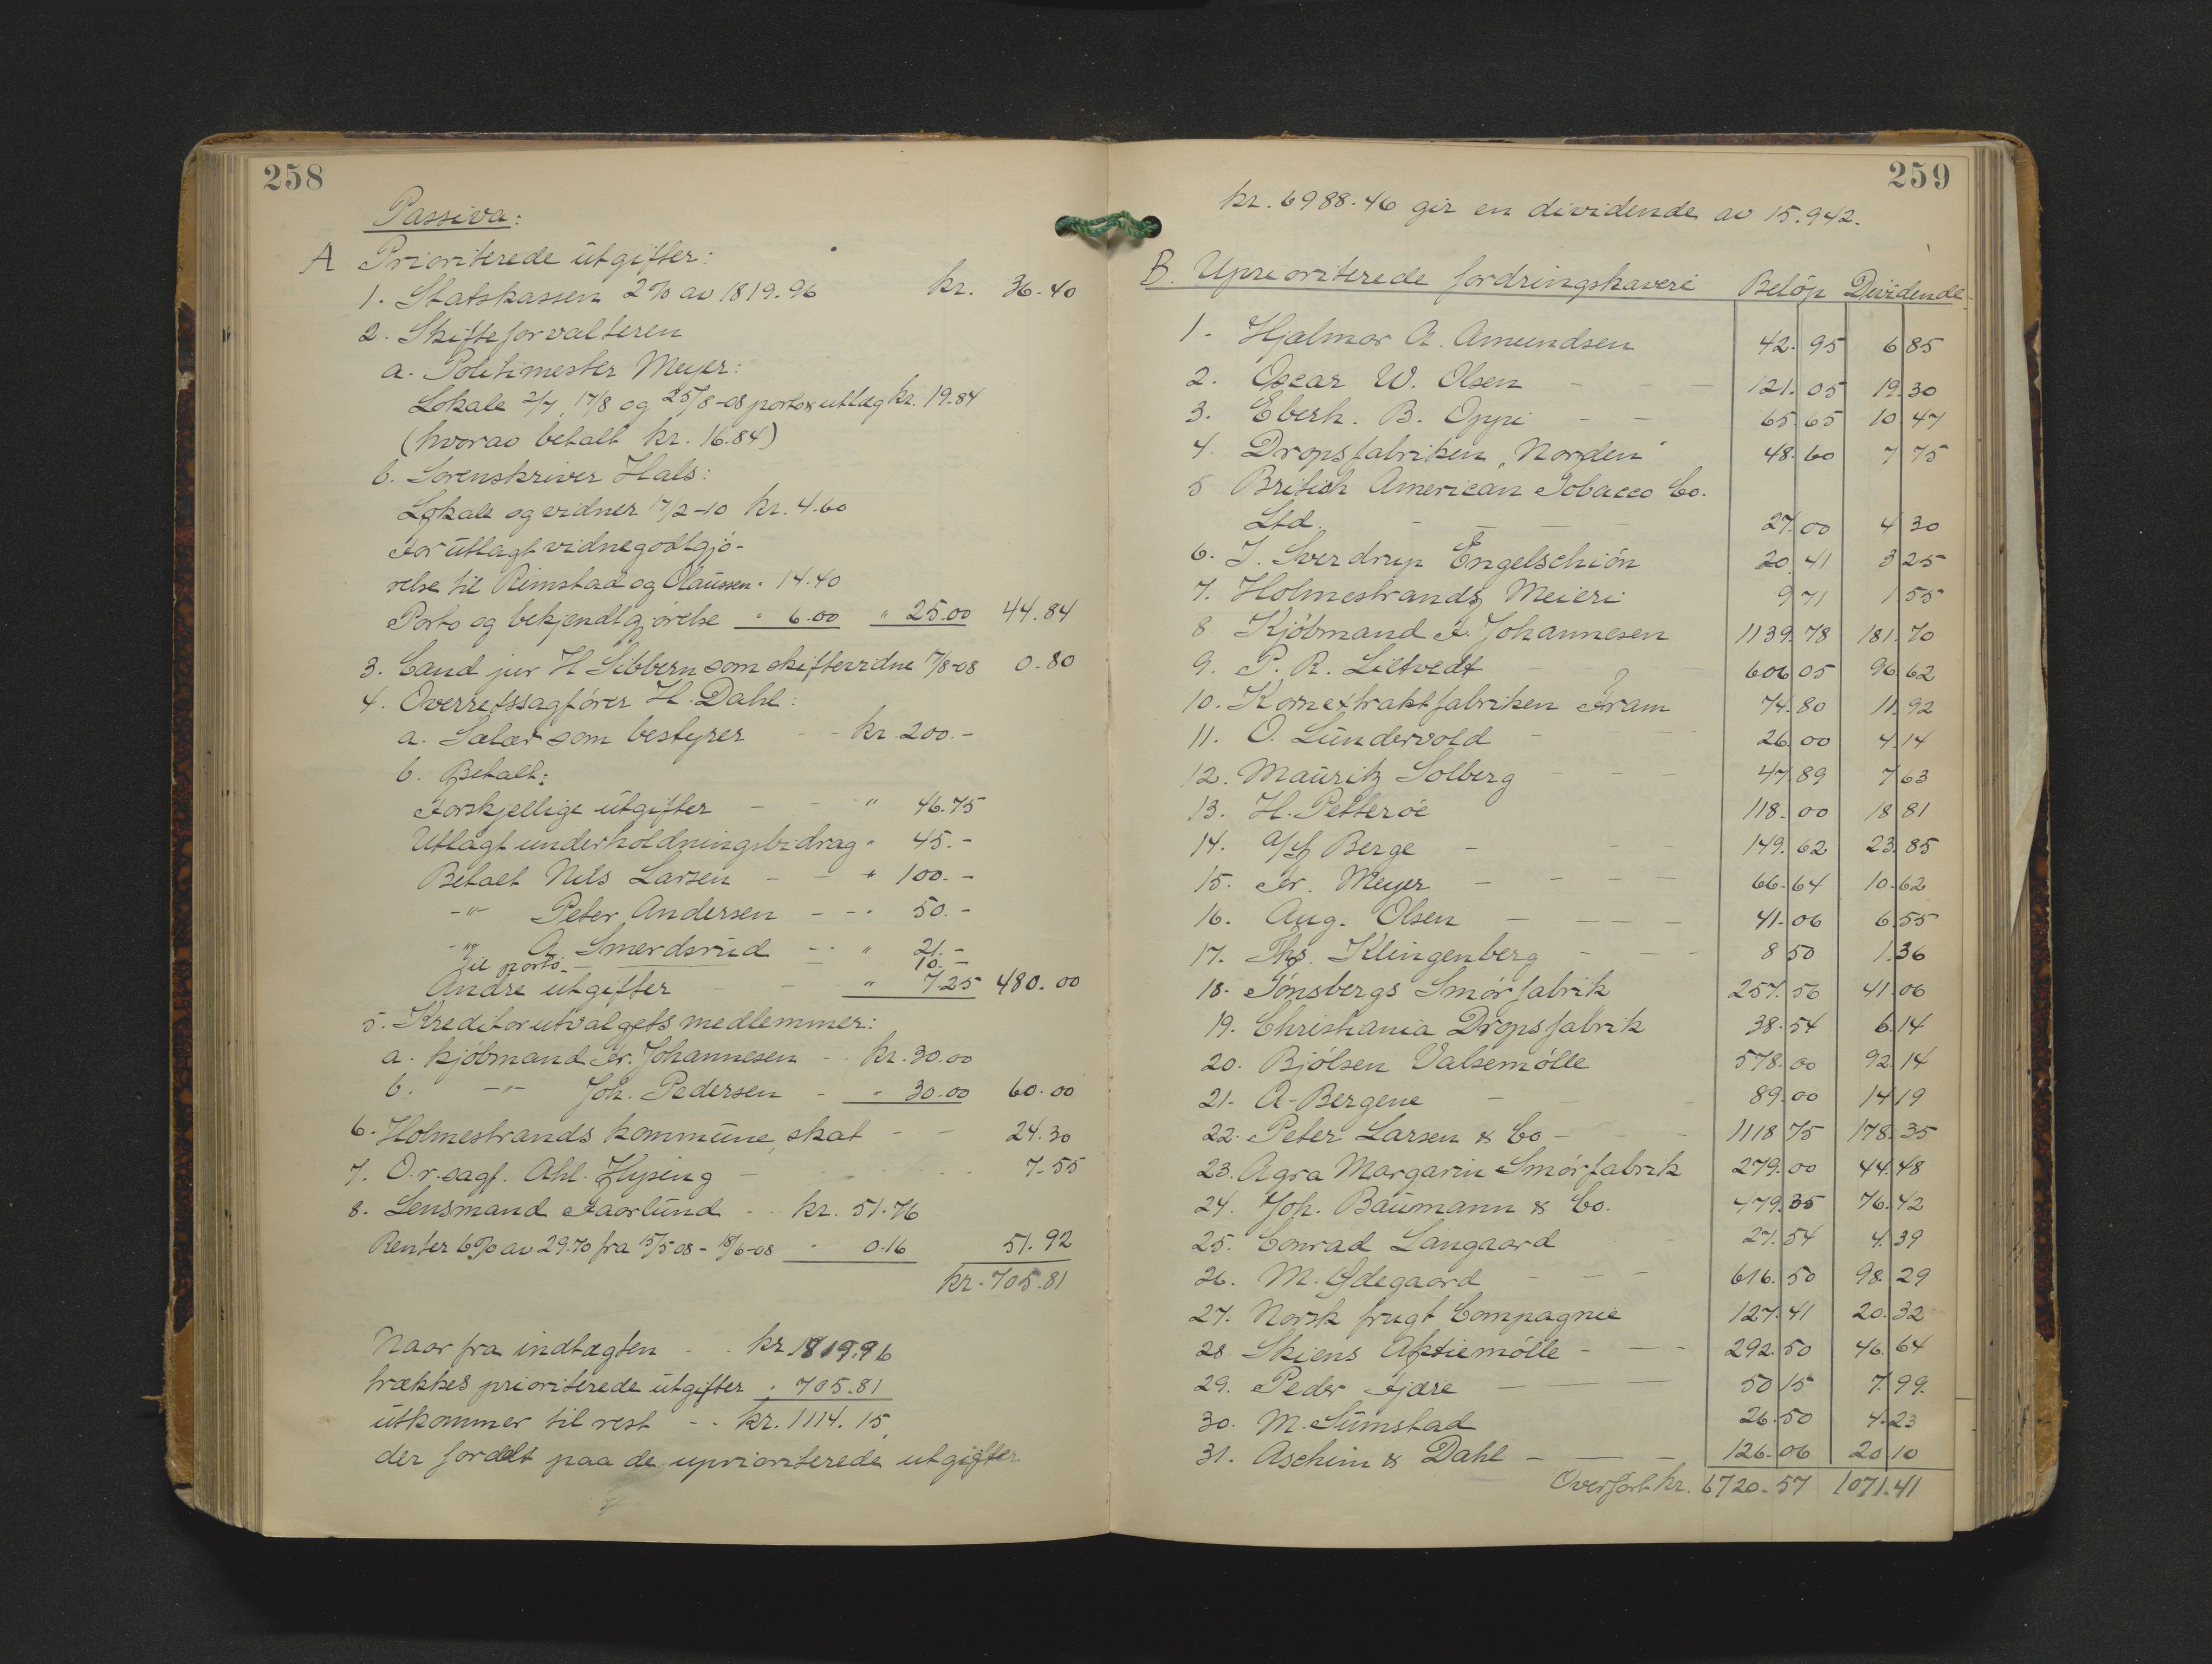 258
Passiva:
A Prioriterede utgifter:
1. Statskassen 2% av 1819.96 kr. 36.40
2. Skifteforvalteren
a. Politimester Meyer:
Lokale 2/7, 17/8 og 25/8-08 porto & utlæg kr. 19.84
(hvorav betalt kr. 16.84)
b. Sorenskriver Hals:
Lokale og vidner 17/2-10 kr. 4.60
For utlagt vidnegodtgjö-
relse til Rimstad og Olaussen " 14.40
Porto og bekjendtgjörelse " 6.00 " 25.00 44.84
3. Cand jur H Sibbern som skiftevidne 17/8-08 0.80
4. Overretssagförer H. Dahl:
a. Salær som bestyrer - - kr. 200.-
b. Betalt:
Forskjellige utgifter - - " 46.75
Utlagt underholdningsbidrag " 45.-
Betalt Nils Larsen - - " 100.-
-"- Peter Andersen - - " 50.-
-"- A. Smerdsrud - - " 21.-
Til porto - 10.-
Andre utgifter - - " 7.25 480.00
5. Kreditorutvalgets medlemmer:
a. kjöbmand Fr. Johannesen - - kr. 30.00
b. -"- Joh. Pedersen - " 30.00 60.00
6. Holmestrands kommune, skat - - 24.30
7. O.r.sagf. Ahl. Hysing - 7.55
8. Lensmand Faarlund - - kr. 51.76
Renter 6% av 29.70 fra 15/5 08 - 18/6-08 " 0.16 51.92
kr. 705.81
Naar fra indtægten - - kr. 1819.96
trækkes prioriterede utgifter " 705.81
utkommer til rest - - kr. 1114.15,
der fordelt paa de uprioriterede utgifter
259
kr. 6988.46 gir en dividende av 15.942.
B. Uprioriterede fordringshavere Belöp Dividende
1. Hjalmar A. Amundsen 42.95 6 85
2. Oscar W. Olsen - - - 121.05 19.30
3. Eberh. B. Oppi - - 65 65 10.47
4. Dropsfabriken "Norden" 48.60 7 75
5 British American Tobacco Co.
Ltd. - - - - 27.00 4 30
6. J. Sverdrup Engelschiön 20.41 3 25
7. Holmestrands Meieri 9 71 1 55
8 Kjöbmand F. Johannesen 1139.78 181.70
9. P. R. Liltvedt - - 606 05 96.62
10. Kornextraktfabriken Fram 74.80 11.92
11. O. Lundervold - - - 26.00 4.14
12. Mauritz Solberg - - - 47.89 7 63
13. H. Petteröe 118.00 18 81
14. A/S Berge - - - 149.62 23.85
15. Fr. Meyer - - - - 66.64 10.62
16. Aug. Olsen - - - - 41.06 6.55
17. Ths. Klingenberg - - - 8 50 1.36
18. Tönsbergs Smörfabrik 257.56 41.06
19. Christiania Dropsfabrik 38.54 6.14
20. Bjölsen Valsemölle 578.00 92.14
21. A. Bergene - - 89.00 14 19
22. Peter Larsen & Co - - - 1118 75 178.35
23. Agra Margarin Smörfabrik 279.00 44.48
24. Joh. Baumann & Co. 479.35 76.42
25. Conrad Langaard - 27.54 4.39
26. M. Ødegaard - - - 616.50 98.29
27. Norsk frugt Compagnie 127.41 20.32
28. Skiens Aktiemölle - - - 292.50 46.64
29. Peder Fjære - - - 50 15 7.99.
30. M. Sumstad 26.50 4.23
31. Aschim & Dahl - - - 126.06 20 10
Overfört kr. 6720.57 1071.41